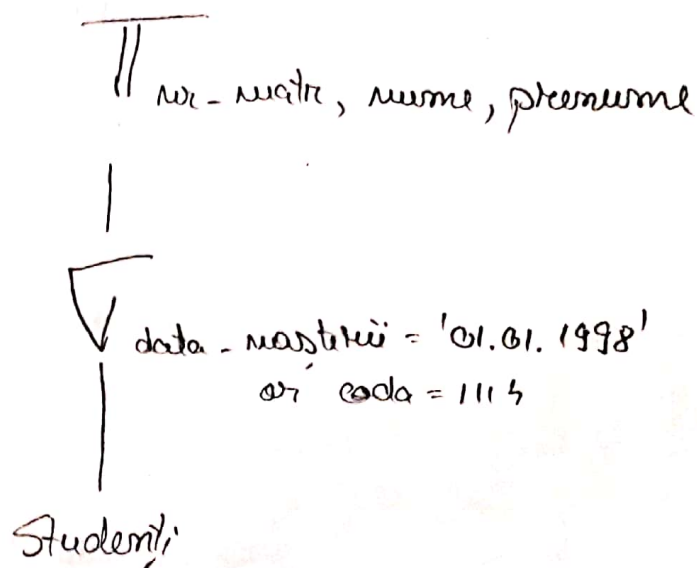 Π nr_matr, nume, prenume
σ data_nașterii = '01.01.1998'
or coda = 1114
Studenți